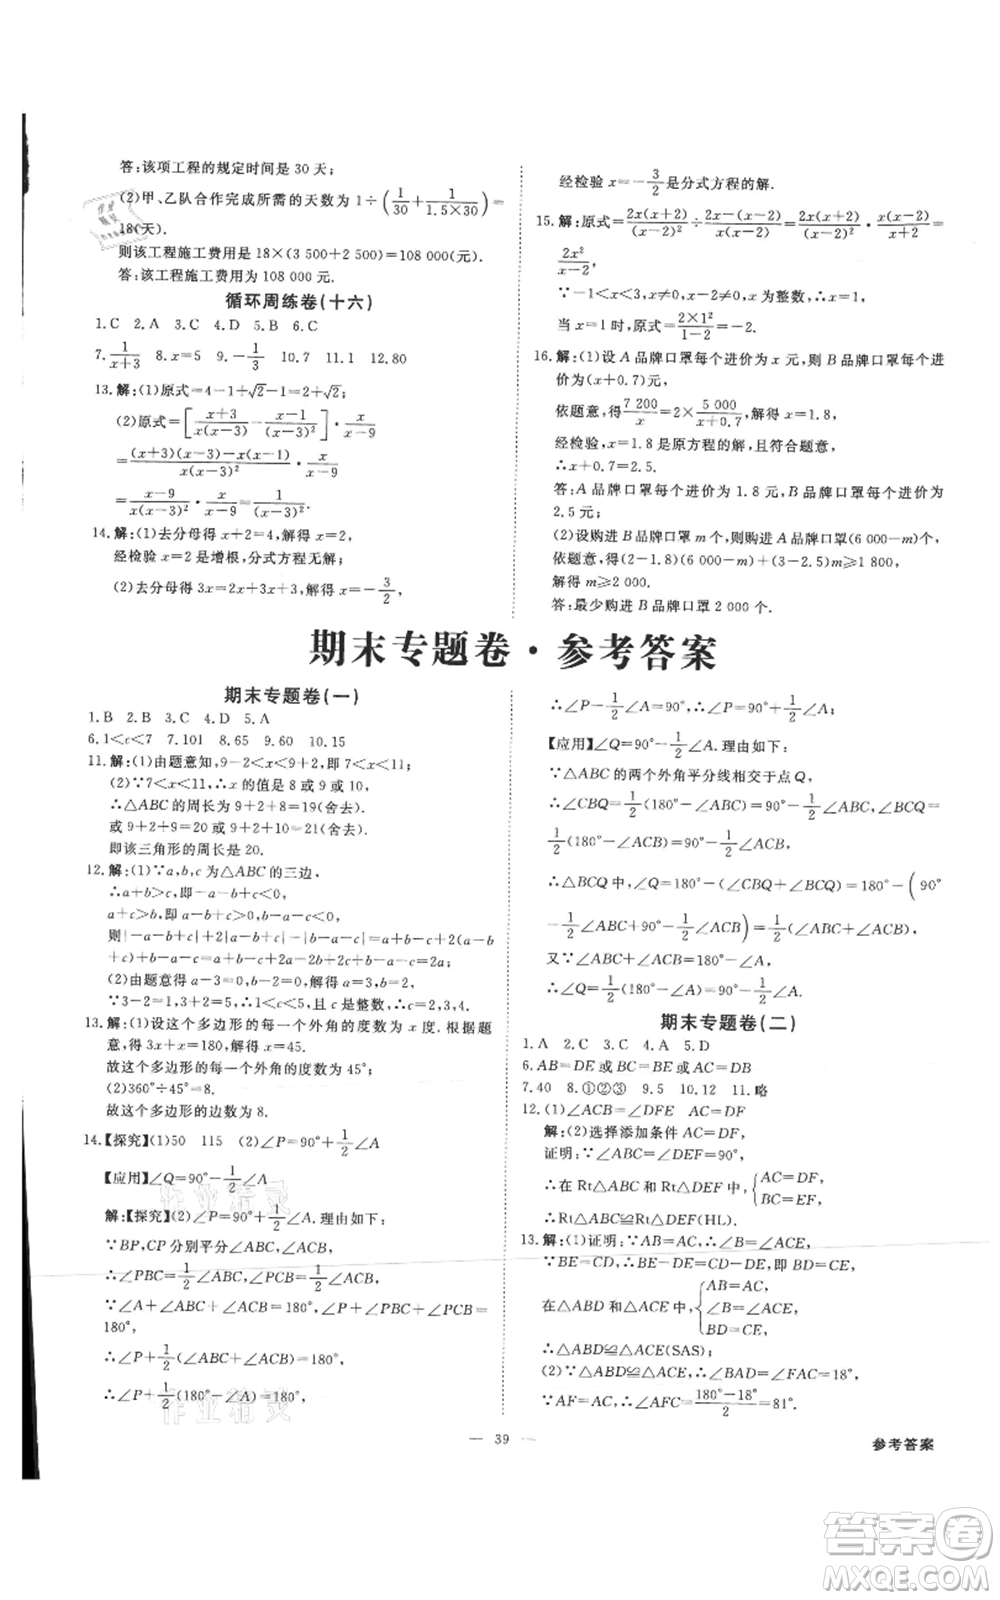 答:该项工程的规定时间是 30 天;
(2)甲、乙队合作完成所需的天数为 1÷(1/30+1/(1.5×30))=
18(天).
则该工程施工费用是 18×(3 500+2 500)=108 000(元).
答:该工程施工费用为 108 000 元.
循环周练卷(十六)
1.C 2.A 3.C 4.D 5.B 6.C
7.1/(x+3) 8.x=5 9.-1/3 10.7 11.1 12.80
13.解:(1)原式=4-1+√2-1=2+√2;
(2)原式=[(x+3)/(x(x-3))-(x-1)/(x-3)²]·x/(x-9)
=((x+3)(x-3)-x(x-1))/(x(x-3)²)·x/(x-9)
=(x-9)/(x(x-3)²)·x/(x-9)=1/(x-3)².
14.解:(1)去分母得 x+2=4,解得 x=2,
经检验 x=2 是增根,分式方程无解;
(2)去分母得 3x=2x+3x+3,解得 x=-3/2,
经检验 x=-3/2是分式方程的解.
15.解:原式=2x(x+2)/(x(x-2))÷(2x-(x-2))/(x(x-2))=2x(x+2)/(x(x-2))·x(x-2)/(x+2)=
2x²/(x-2);
∵-1<x<3,且 x≠0,x≠2,x 为整数,∴x=1,
当 x=1 时,原式=(2×1²)/(1-2)=-2.
16.解:(1)设 A 品牌口罩每个进价为 x 元,则 B 品牌口罩每个进
价为(x+0.7)元,
依题意,得7 200/x=2×5 000/(x+0.7),解得 x=1.8,
经检验,x=1.8 是原方程的解,且符合题意,
∴x+0.7=2.5.
答:A 品牌口罩每个进价为 1.8 元,B 品牌口罩每个进价为
2.5 元;
(2)设购进 B 品牌口罩 m 个,则购进 A 品牌口罩(6 000-m)个,
依题意,得(2-1.8)(6 000-m)+(3-2.5)m≥1 800,
解得 m≥2 000.
答:最少购进 B 品牌口罩 2 000 个.
期末专题卷·参考答案
期末专题卷(一)
1.B 2.B 3.C 4.D 5.A
6.1<c<7 7.101 8.65 9.60 10.15
11.解:(1)由题意知,9-2<x<9+2,即 7<x<11;
(2)∵7<x<11,∴x 的值是 8 或 9 或 10,
∴△ABC 的周长为 9+2+8=19(舍去).
或 9+2+9=20 或 9+2+10=21(舍去).
即该三角形的周长是 20.
12.解:(1)∵a,b,c 为△ABC 的三边,
∴a+b>c,即 c-a-b<0,
a+c>b,即 b-a-c<0,
则|-a-b+c|+2|a+b+c|-|b-a-c|=a+b-c+2(a-b
+c)+b-a-c=a+b-c+2a-2b+2c+b-a-c=2a;
(2)由题意得 a-3=0,b-2=0,解得 a=3,b=2,
∵3-2=1,3+2=5,∴1<c<5,且 c是整数,∴c=2,3,4.
13.解:(1)设这个多边形的每一个外角的度数为 x 度.根据题
意,得 3x+x=180,解得 x=45.
故这个多边形的每一个外角的度数为 45°;
(2)360°÷45°=8.
故这个多边形的边数为 8.
14.【探究】(1)50 115 (2)∠P=90°+1/2∠A
【应用】∠Q=90°-1/2∠A
解:【探究】(2)∠P=90°+1/2∠A.理由如下:
∵BP,CP 分别平分∠ABC,∠ACB,
∴∠PBC=1/2∠ABC,∠PCB=1/2∠ACB,
∵∠A+∠ABC+∠ACB=180°,∠P+∠PBC+∠PCB=
180°,
∴∠P+1/2(∠ABC+∠ACB)=180°,
∴∠P+1/2(180°-∠A)=180°,
∴∠P-1/2∠A=90°,∴∠P=90°+1/2∠A;
【应用】∠Q=90°-1/2∠A.理由如下:
∵△ABC 的两个外角平分线相交于点 Q,
∴∠CBQ=1/2(180°-∠ABC)=90°-1/2∠ABC,∠BCQ=
1/2(180°-∠ACB)=90°-1/2∠ACB,
∴△BCQ 中,∠Q=180°-(∠CBQ+∠BCQ)=180°-(90°
-1/2∠ABC+90°-1/2∠ACB)=1/2(∠ABC+∠ACB),
又∵∠ABC+∠ACB=180°-∠A,
∴∠Q=1/2(180°-∠A)=90°-1/2∠A.
期末专题卷(二)
1.A 2.C 3.C 4.A 5.D
6.AB=DE或∠ACB=∠DFC 或AC=DB
7.40 8.①②③ 9.5 10.12 11.略
12.(1)∠ACB=∠DFE AC=DF
解:(2)选择添加条件 AC=DF,
证明:∵∠ABC=∠DEF=90°,
∴在 Rt△ABC 和 Rt△DEF 中,{AC=DF,
BC=EF,
∴Rt△ABC≌Rt△DEF(HL).
13.解:(1)证明:∵AB=AC,∴∠B=∠ACE,
∵BE=CD,∴BE-DE=CD-DE,即 BD=CE,
在△ABD 和△ACE 中,{AB=AC,
∠B=∠ACE,
BD=CE,
∴△ABD≌△ACE(SAS);
(2)∵△ABD≌△ACE,∴∠BAD=∠FAC=18°,
∵AF=CF,∴∠ACF=∠AFC=(180°-18°)/2=81°.
— 39 —
参考答案
作业精灵
作业精灵
答案卷
MXQE.COM